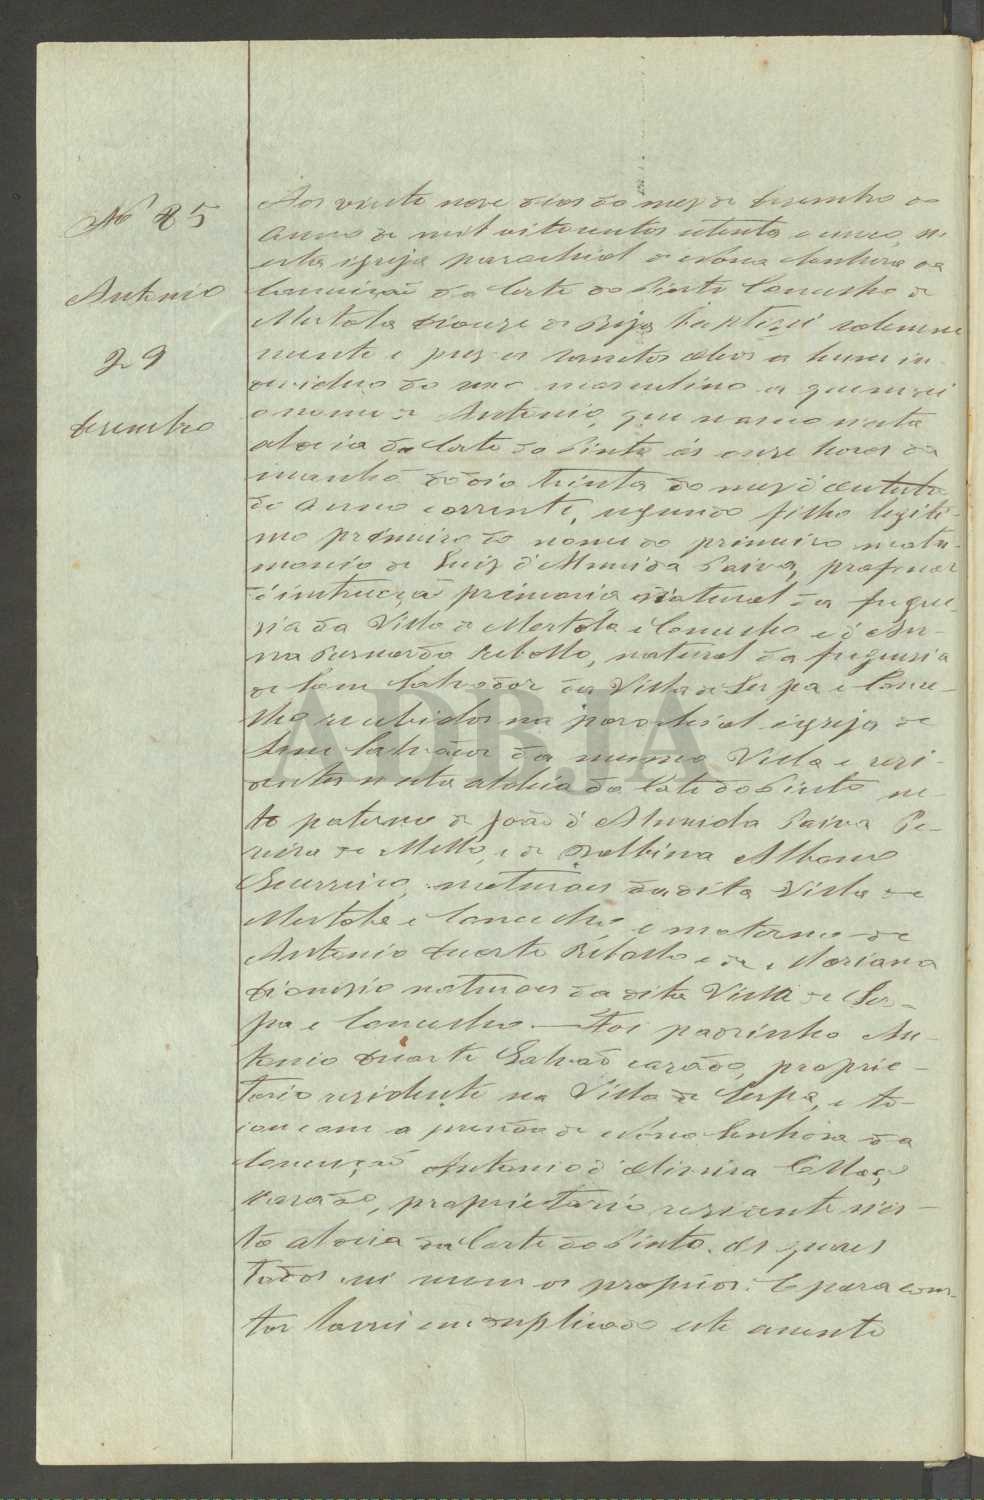 Nº 25
Antonio
29
dezembro
Aos vinte nove dias do mez de dezembro do
anno de mil oitocentos oitenta e cinco, n'
esta igreja parochial de Nossa Senhora da
Conceição da Corte do Pinto Concelho de
Mertola diocese de Beja baptizei solemne
mente e puz os santos oleos a hum in
dividuo do sexo masculino a quem dei
o nome de Antonio, que nasceu nesta
aldeia da Corte do Pinto ás onze horas da
manhã do dia trinta do mez d'outubro
do anno corrente, segundo filho legiti-
mo primeiro do nome do primeiro matri-
monio de Luiz d'Almeida Paiva, professor
d'instrucção primaria natural da fregue-
zia da Villa de Mertola e Concelho e d'An-
na Bernarda Rebollo, natural da freguezia
de Sam Salvador da Villa de Serpa e Conce-
lho recebidos na parochial igreja de
Sam Salvador da mesma Villa e resi-
dentes n'esta aldeia da Corte do Pinto ne-
to paterno de João d'Almeida Paiva Pe-
reira de Mello, e de Balbina Albana
Guerreiro, naturaes da dita Villa de
Mertola e Concelho, e materno de
Antonio Duarte Rebollo e de Mariana
Dionizia naturaes da dita Villa de Ser-
pa e Concelho. — Foi padrinho An-
tonio Duarte Galvão casado, proprie-
tario residente na Villa de Serpa, e to-
cou com a prenda de Nossa Senhora da
Conceição Antonio d'Oliveira Collaço
casado, proprietario residente n'es-
ta aldeia da Corte do Pinto. Os quaes
todos sei serem os proprios. E para cons-
tar lavrei em duplicado este assento
ADBJA